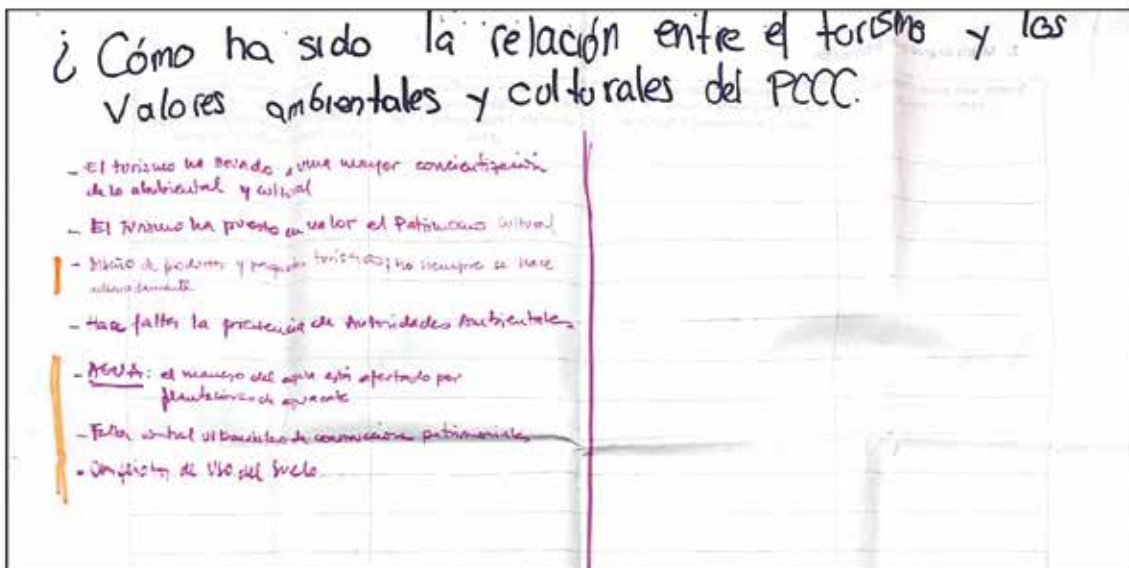 ¿Cómo ha sido la relación entre el turismo y los
Valores ambientales y culturales del PCCC.
- El turismo ha una mayor concientización
de lo ambiental y cultural
- El Turismo ha puesto en valor el Patrimonio cultural
- Diseño de productos y paquetes turísticos; no siempre se hace
adecuadamente
- Hace falta la presencia de Autoridades Ambientales.
- AGUA: el manejo del agua está afectado por
plantaciones de aguacate
- Falta control de construcciones patrimoniales
- Conflictos de USO del Suelo.